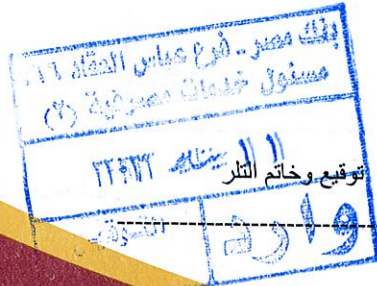 بنك مصر - فرع عباس العقاد ١٦
مسئول خدمات مصرفية (٢)
توقيع وخاتم التلر
التوقيع
وارد